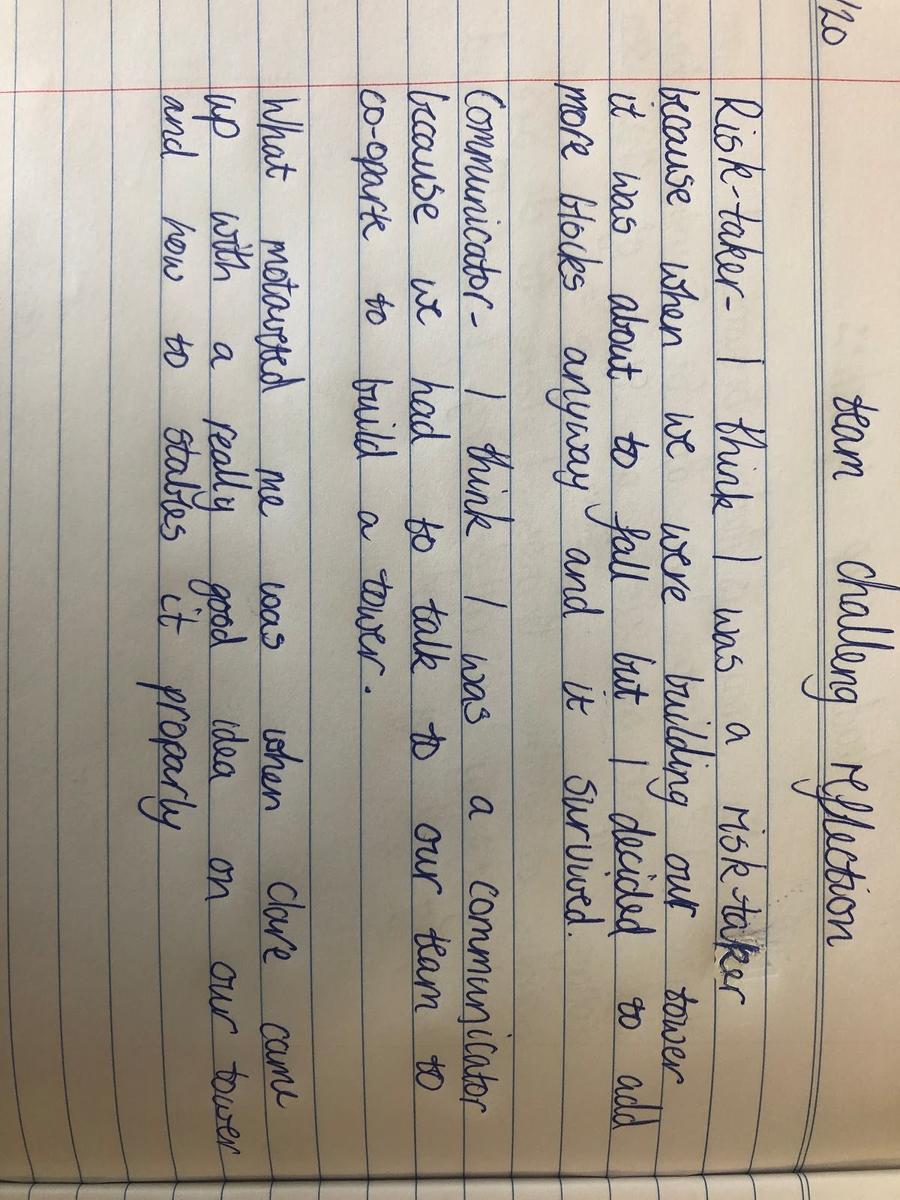 /20
team challeng reflection
Risk-taker- I think I was a risk-taker
because when we were building our tower
it was about to fall but I decided to add
more blocks anyway and it survived.
Communicator- I think I was a communicator
because we had to talk to our team to
co-oparte to build a tower.
What motavted me was when Clare came
up with a really good idea on our tower
and how to stables it proparly